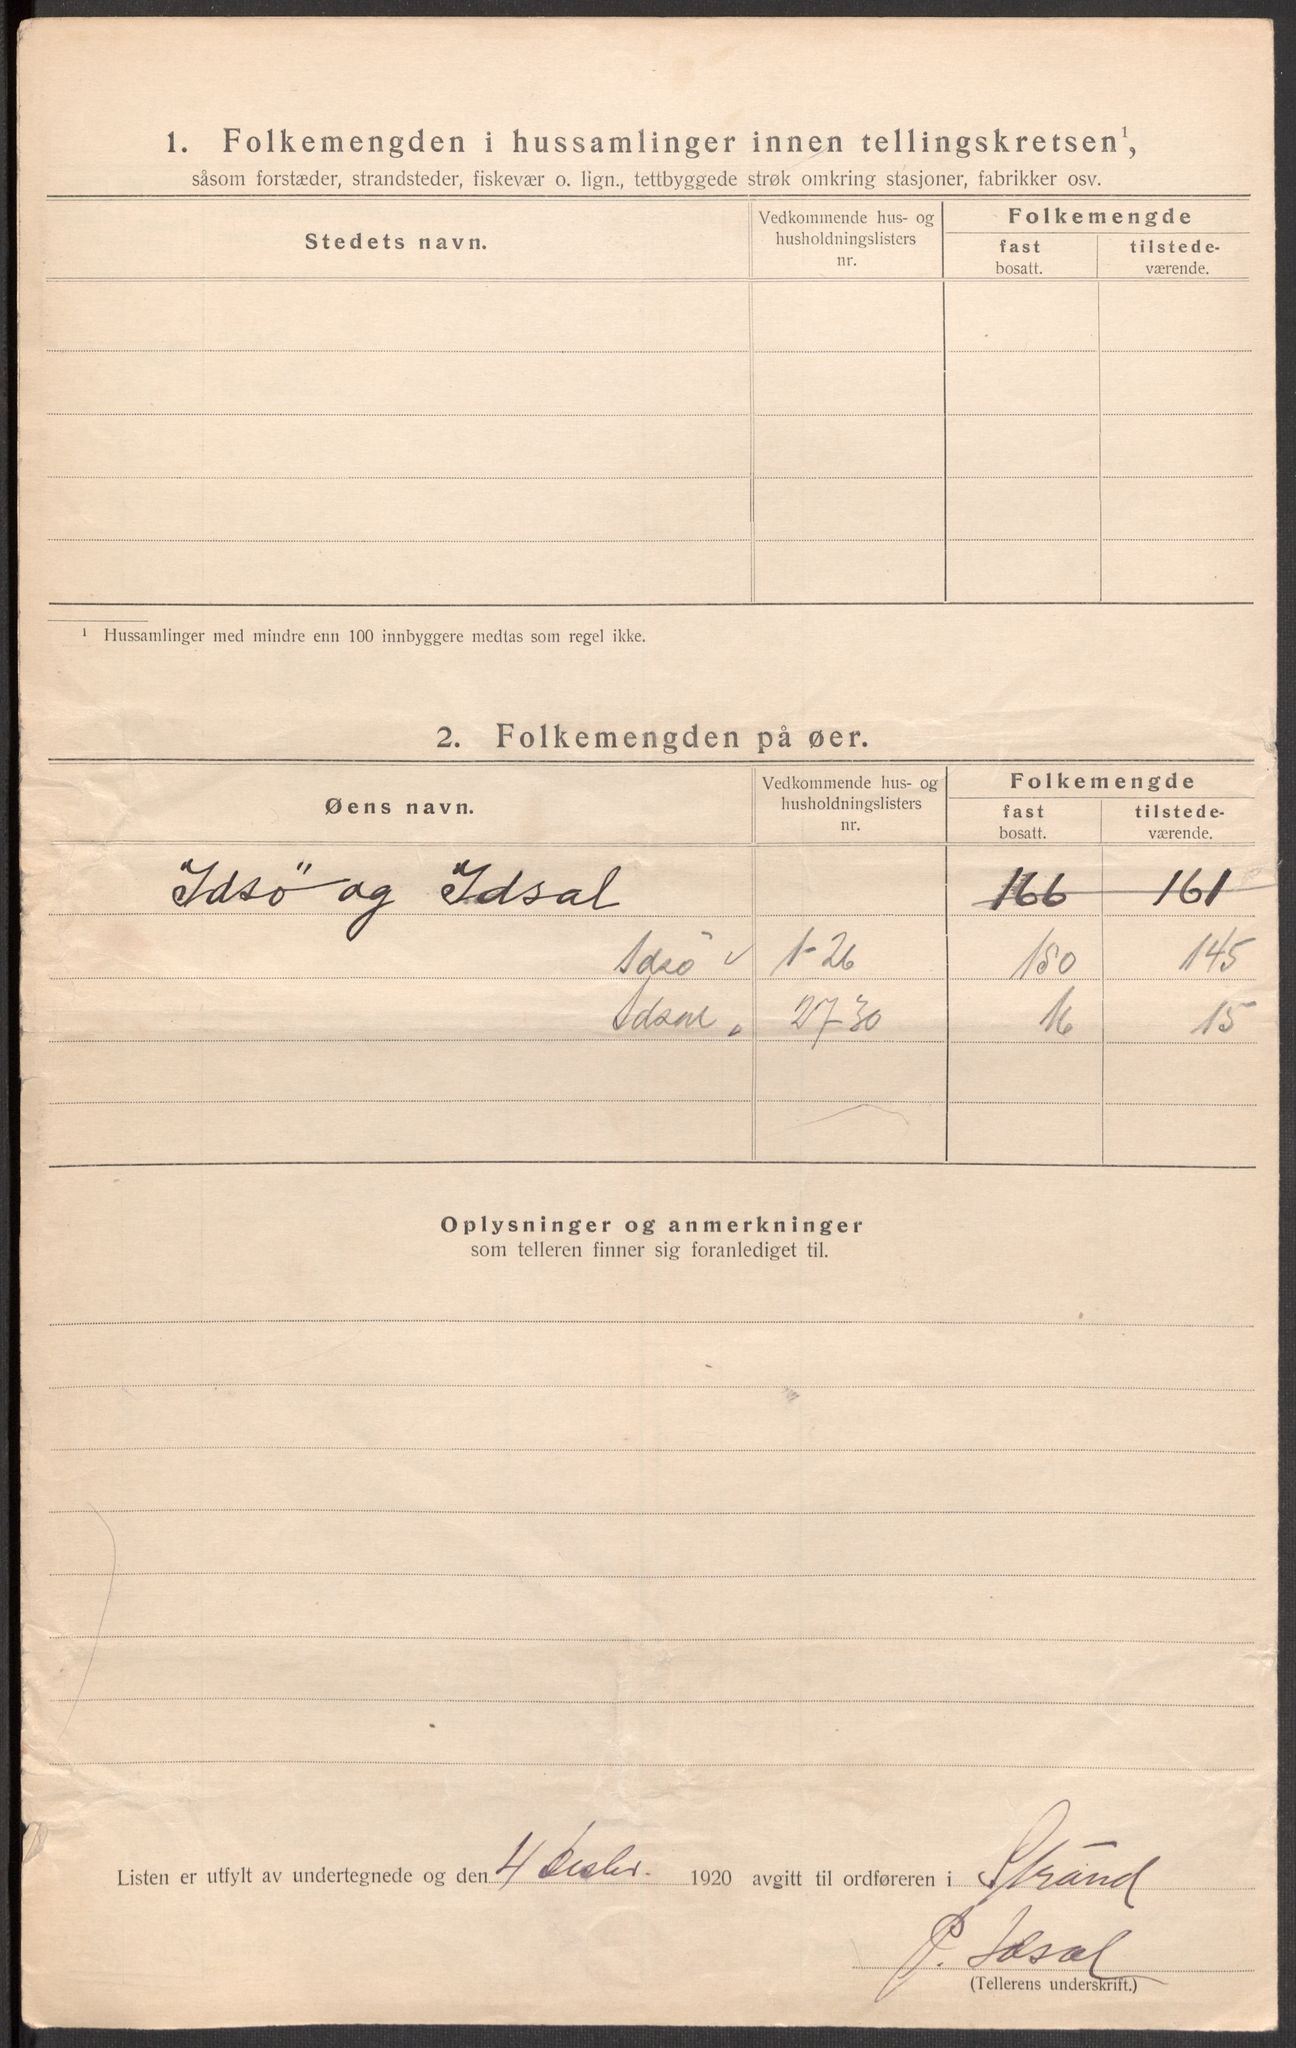 1. Folkemengden i hussamlinger innen tellingskretsen¹,
såsom forstæder, strandsteder, fiskevær o. lign., tettbyggede strøk omkring stasjoner, fabrikker osv.
Stedets navn.
Vedkommende hus- og husholdningslisters nr.
Folkemengde
fast bosatt.
tilstede-værende.
¹ Hussamlinger med mindre enn 100 innbyggere medtas som regel ikke.
2. Folkemengden på øer.
Øens navn.
Vedkommende hus- og husholdningslisters nr.
Folkemengde
fast bosatt.
tilstede-værende.
"Idsö" og "Idsal 166 161
Idsö 1-26 150 145
Idsal 27-30 16 15
Oplysninger og anmerkninger
som telleren finner sig foranlediget til.
Listen er utfylt av undertegnede og den 4 desbr. 1920 avgitt til ordføreren i Strand
P. Idsal
(Tellerens underskrift.)